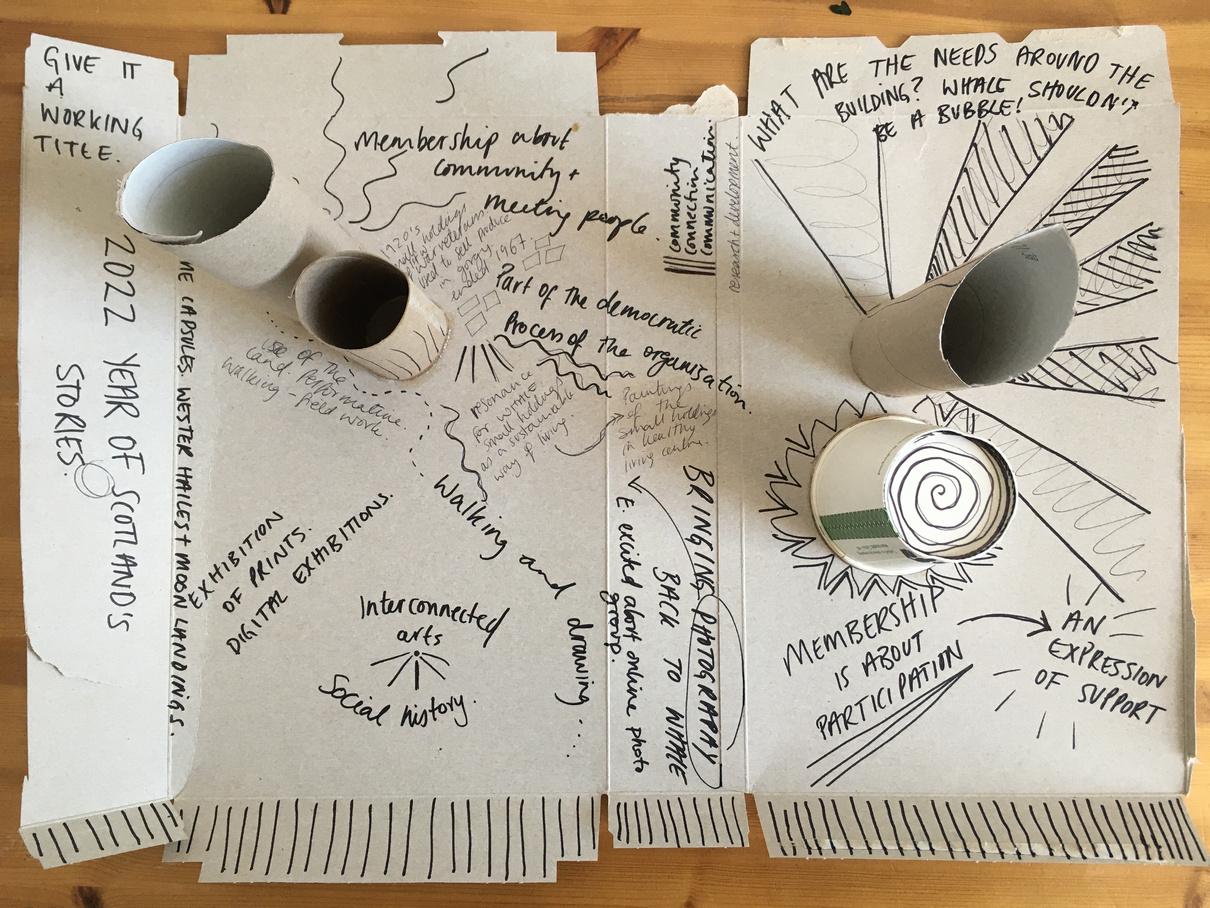 GIVE IT
A
WORKING
TITLE.
2022 YEAR OF SCOTLAND'S
STORIES.
ME CAPSULES. WESTER HAILES + MOON LANDINGS.
Membership about
community +
meeting people.
1920's
small holdings
veterans
used to sell produce
in gorgy
ended 1967.
Part of the democratic
Process of the organisation.
use of the
land. Performative.
Walking - field work.
resonance
for
small holdings
as a sustainable
way of living.
Paintings
of the
small holdings
in healthy
living centre.
Walking and drawing...
EXHIBITION
OF PRINTS.
DIGITAL EXHIBITIONS.
Interconnected
arts
Social history.
community
connection
communication.
research + development
BRINGING PHOTOGRAPHY
BACK TO WHALE
E. excited about online photo
group.
WHAT ARE THE NEEDS AROUND THE
BUILDING? WHALE SHOULDN'T
BE A BUBBLE!
MEMBERSHIP
IS ABOUT
PARTICIPATION
AN
EXPRESSION
OF SUPPORT